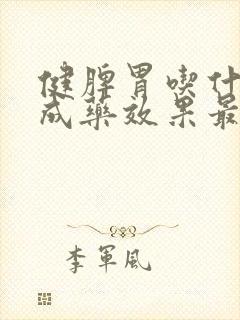 健脾胃喫什
成藥效果最
李軍風